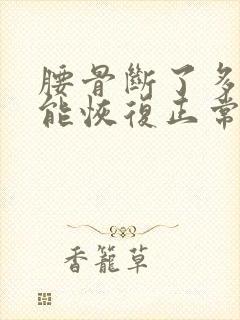 腰骨斷了多
能恢復正常
香籠草